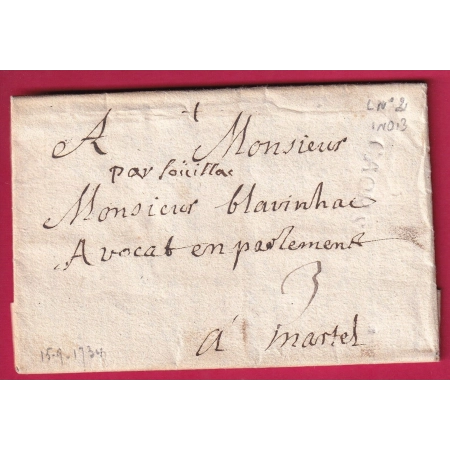 A Monsieur
par soüillac
Monsieur blavinhac
Avocat en parlement
3
á martel
L N° 2
IND 13
15-9-1734